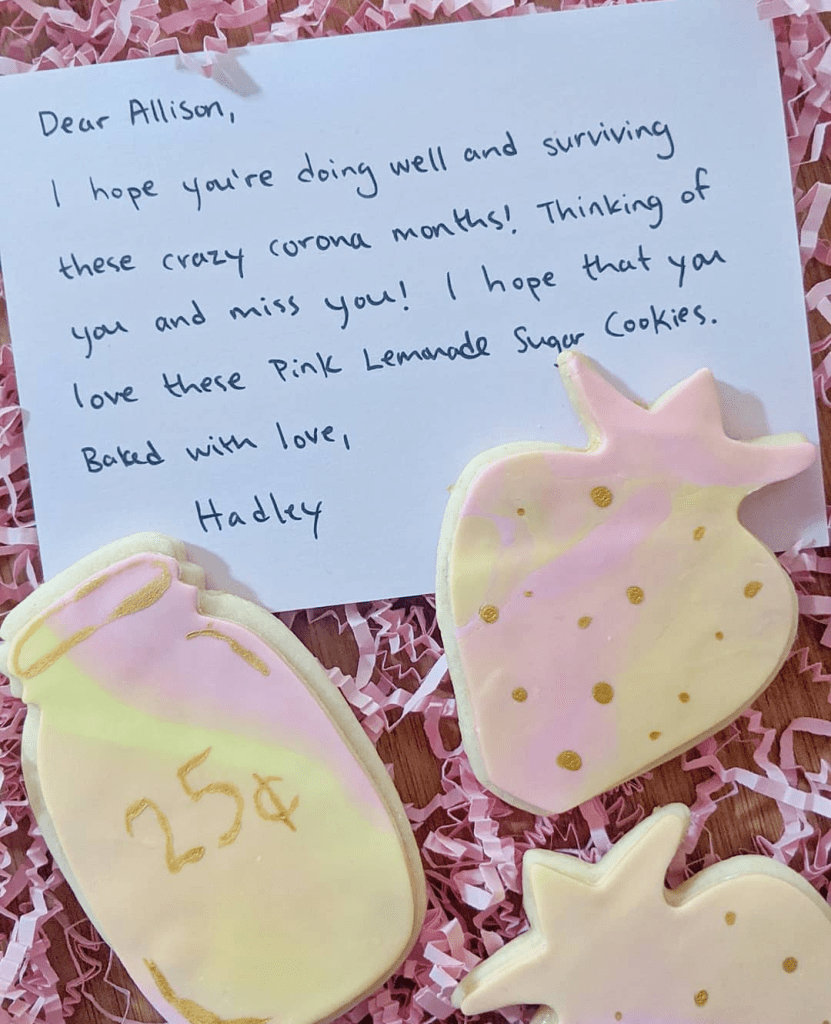 Dear Allison,
I hope you're doing well and surviving
these crazy corona months! Thinking of
you and miss you! I hope that you
love these Pink Lemonade Sugar Cookies.
Baked with love,
Hadley
25¢